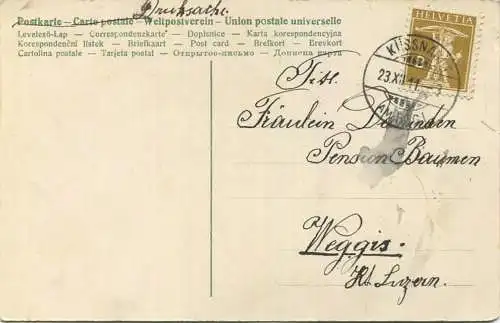 Drucksache.
Postkarte - Carte postale - Weltpostverein - Union postale universelle
Levelező-Lap — Correspondenzkarte — Dopisnice — Karta korespondencyjna
Korespondenční lístek — Briefkaart — Post card — Brefkort — Brevkort
Cartolina postale — Tarjeta postal — Открытое письмо — Дописна карта
HELVETIA
KÜSSNA
23.XII.11.
Fräulein
Pension Baumen
Weggis.
Kt. Luzern.